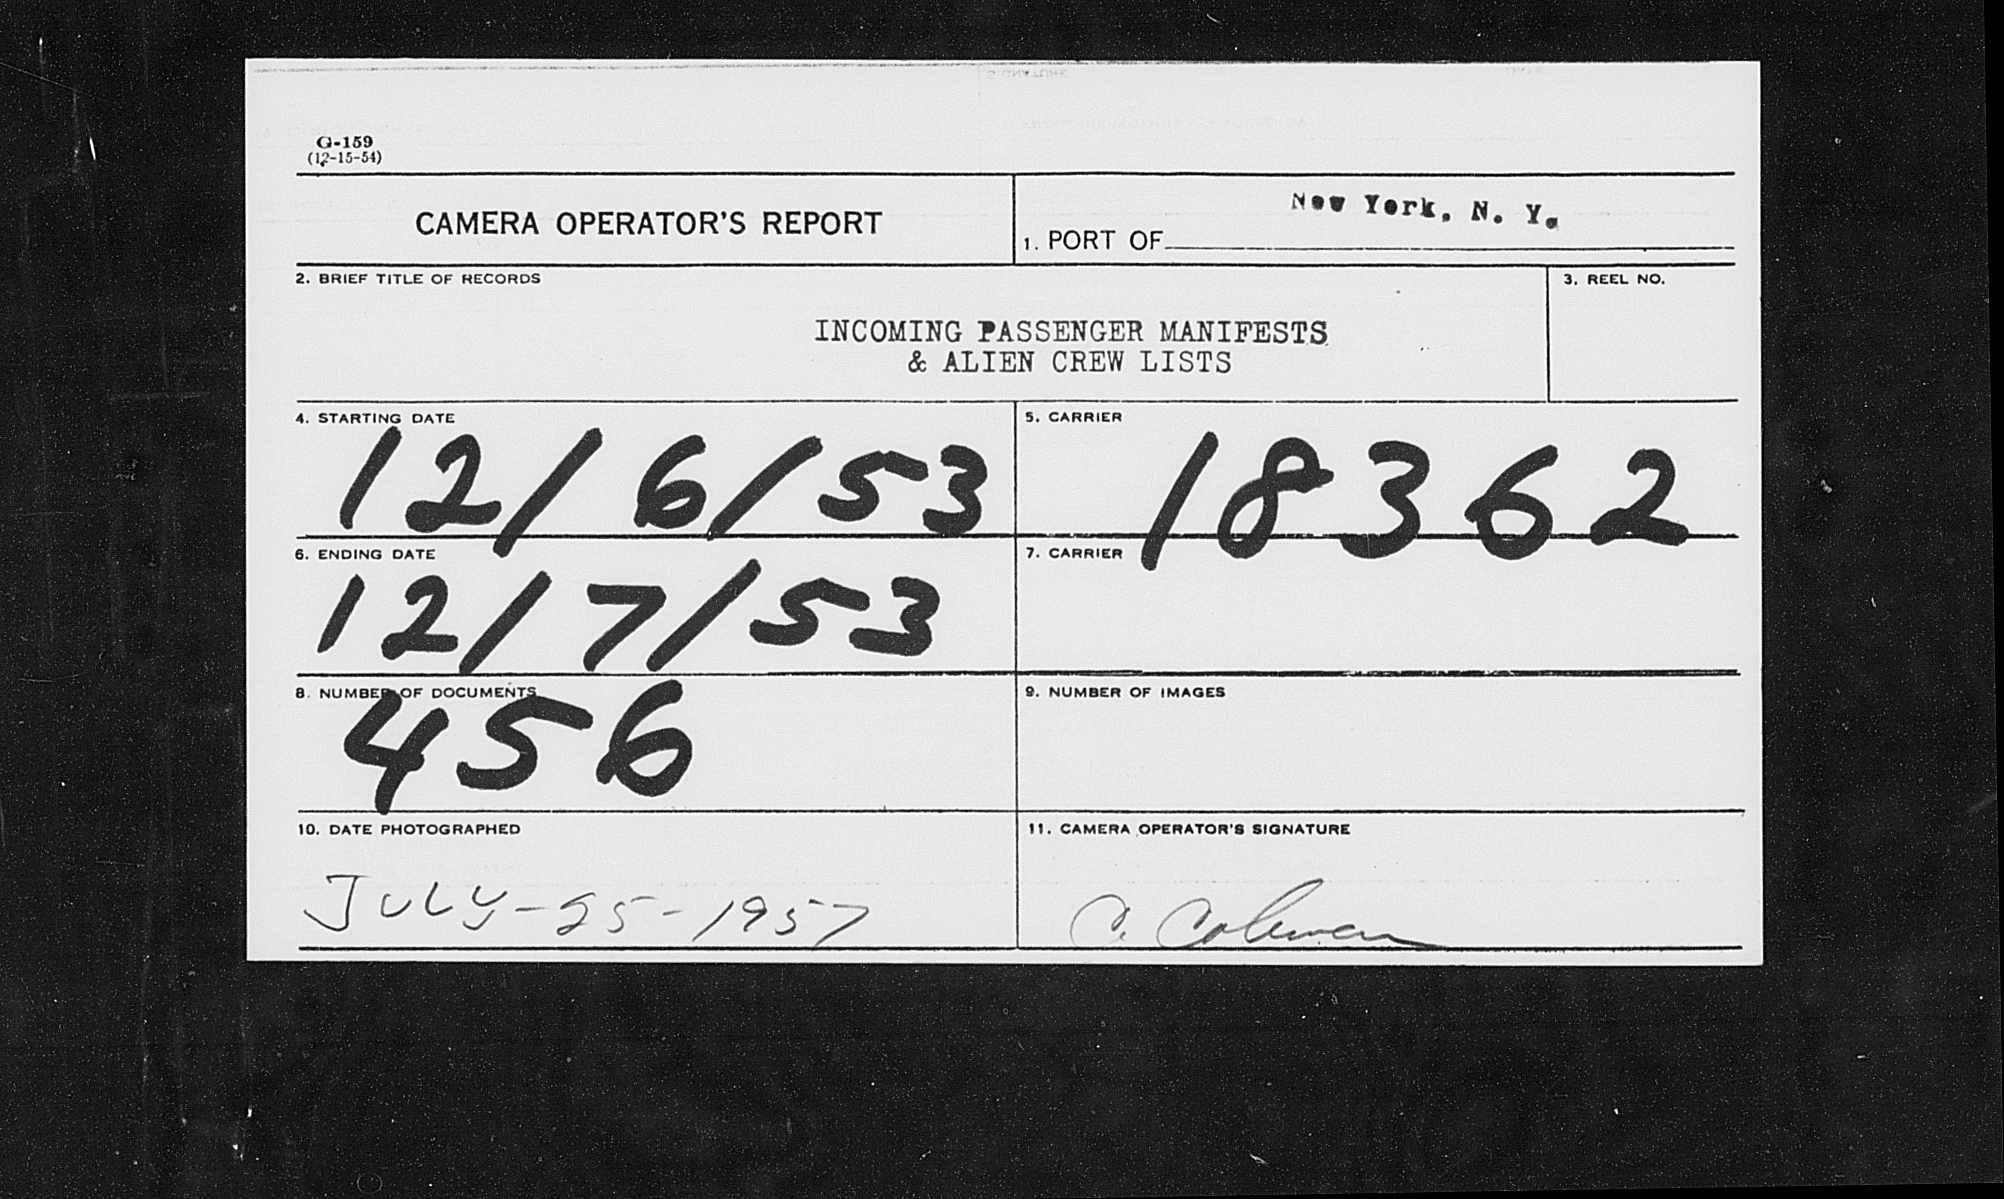 G-159
(12-15-54)
CAMERA OPERATOR'S REPORT
1. PORT OF New York, N. Y.
2. BRIEF TITLE OF RECORDS
INCOMING PASSENGER MANIFESTS
& ALIEN CREW LISTS
3. REEL NO.
4. STARTING DATE
12/6/53
5. CARRIER
18362
6. ENDING DATE
12/7/53
7. CARRIER
8. NUMBER OF DOCUMENTS
456
9. NUMBER OF IMAGES
10. DATE PHOTOGRAPHED
JULY-25-1957
11. CAMERA OPERATOR'S SIGNATURE
C. Coleman